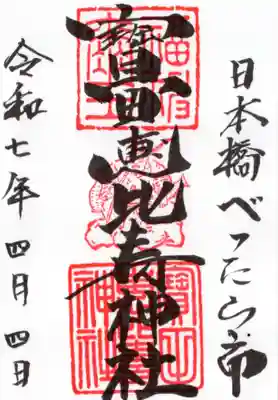 日本橋べったら市
寶田恵比寿神社
令和七年四月四日